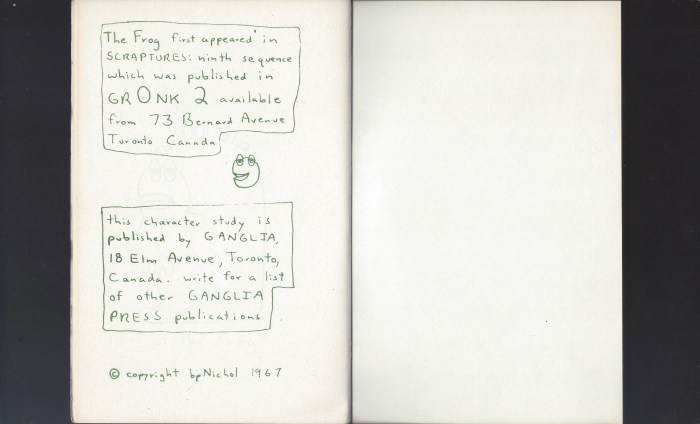 The Frog first appeared in
SCRAPTURES: ninth sequence
which was published in
GRONK 2 available
from 73 Bernard Avenue
Toronto Canada
this character study is
published by GANGLIA,
18 Elm Avenue, Toronto,
Canada. write for a list
of other GANGLIA
PRESS publications
© copyright bpNichol 1967